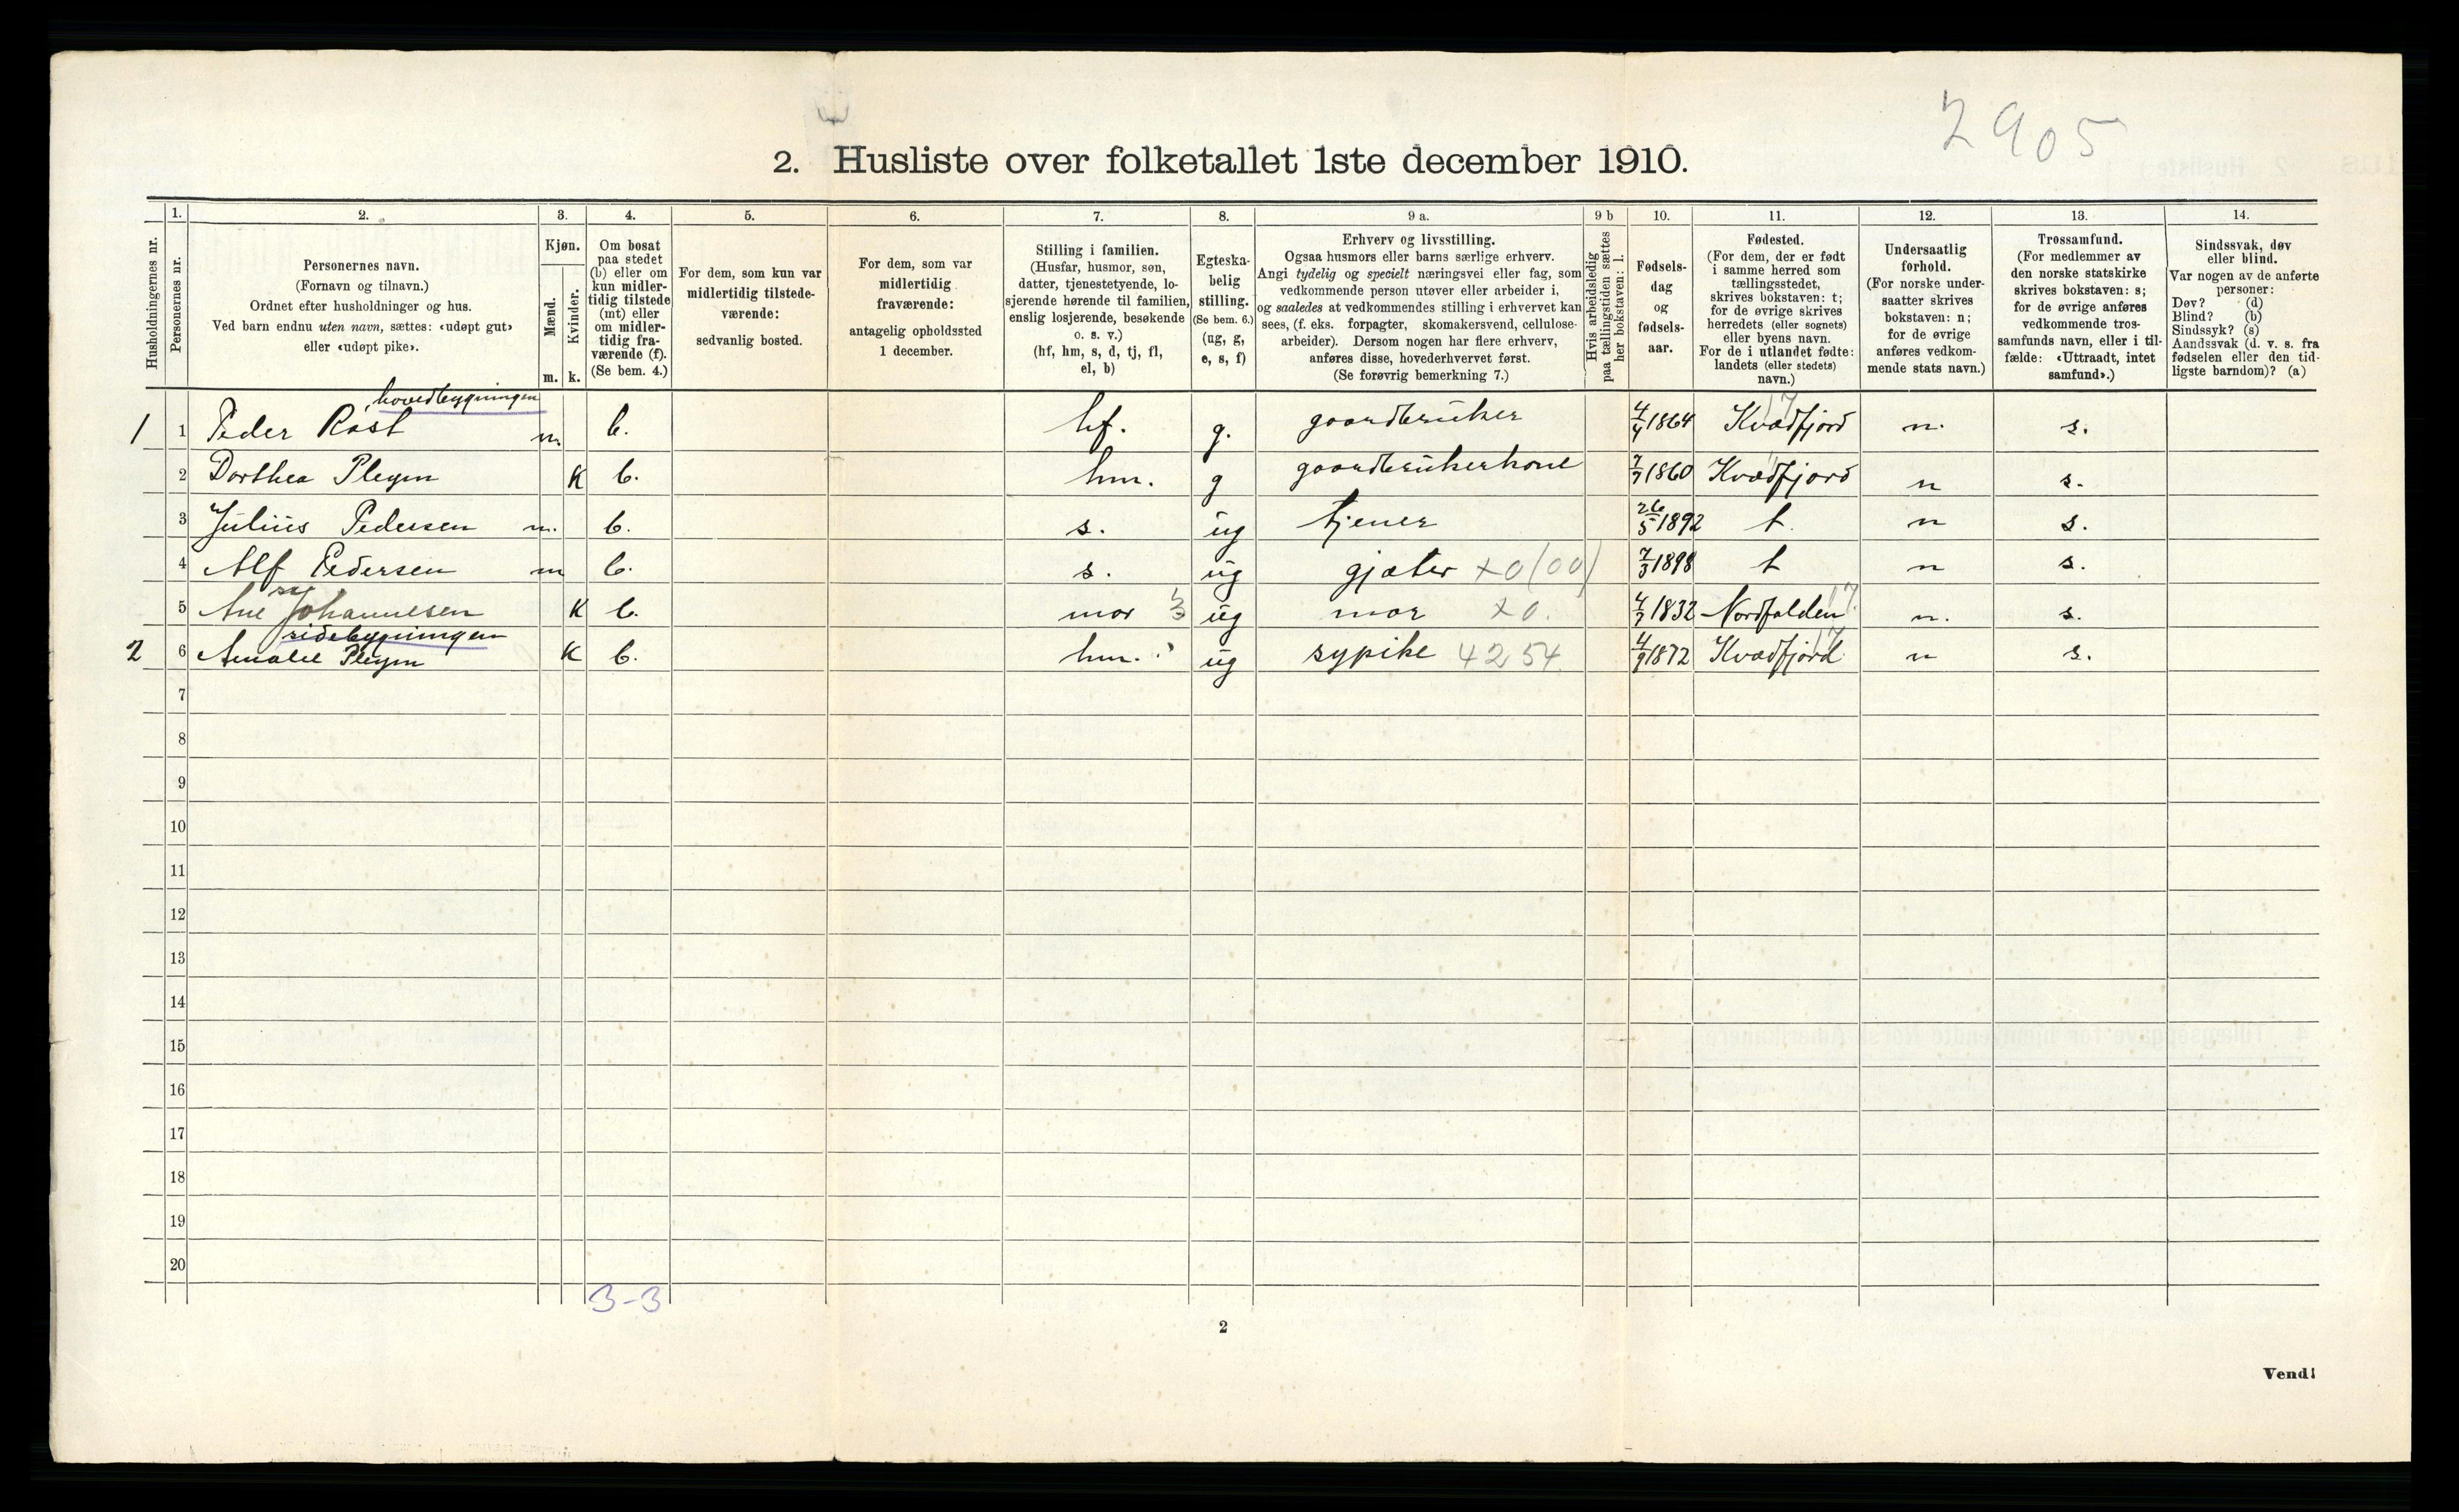 2905
2. Husliste over folketallet 1ste december 1910.
Husholdningernes nr.
1.
Personernes nr.
2.
Personernes navn.
(Fornavn og tilnavn.)
Ordnet efter husholdninger og hus.
Ved barn endnu uten navn, sættes: «udøpt gut»
eller «udøpt pike».
3.
Kjøn.
Mænd.
Kvinder.
m. k.
4.
Om bosat
paa stedet
(b) eller om
kun midler-
tidig tilstede
(mt) eller
om midler-
tidig fra-
værende (f).
(Se bem. 4.)
5.
For dem, som kun var
midlertidig tilstede-
værende:
sedvanlig bosted.
6.
For dem, som var
midlertidig
fraværende:
antagelig opholdssted
1 december.
7.
Stilling i familien.
(Husfar, husmor, søn,
datter, tjenestetyende, lo-
sjerende hørende til familien,
enslig losjerende, besøkende
o. s. v.)
(hf, hm, s, d, tj, fl,
el, b)
8.
Egteska-
belig
stilling.
(Se bem. 6.)
(ug, g,
e, s, f)
9 a.
Erhverv og livsstilling.
Ogsaa husmors eller barns særlige erhverv.
Angi tydelig og specielt næringsvei eller fag, som
vedkommende person utøver eller arbeider i,
og saaledes at vedkommendes stilling i erhvervet kan
sees, (f. eks. forpagter, skomakersvend, cellulose-
arbeider). Dersom nogen har flere erhverv,
anføres disse, hovederhvervet først.
(Se forøvrig bemerkning 7.)
9 b
Hvis arbeidsledig
paa tællingstiden sættes
her bokstaven: l.
10.
Fødsels-
dag
og
fødsels-
aar.
11.
Fødested.
(For dem, der er født
i samme herred som
tællingsstedet,
skrives bokstaven: t;
for de øvrige skrives
herredets (eller sognets)
eller byens navn.
For de i utlandet fødte:
landets (eller stedets)
navn.)
12.
Undersaatlig
forhold.
(For norske under-
saatter skrives
bokstaven: n;
for de øvrige
anføres vedkom-
mende stats navn.)
13.
Trossamfund.
(For medlemmer av
den norske statskirke
skrives bokstaven: s;
for de øvrige anføres
vedkommende tros-
samfunds navn, eller i til-
fælde: «Uttraadt, intet
samfund».)
14.
Sindssvak, døv
eller blind.
Var nogen av de anførte
personer:
Døv? (d)
Blind? (b)
Sindssyk? (s)
Aandssvak (d. v. s. fra
fødselen eller den tid-
ligste barndom)? (a)
hovedbygningen
1 1 Peder Røst m. b. hf. g. gaardbruker 4/4 1864 Kvædfjord 17 n. s.
2 Dorthea Pleym K b. hm. g gaardbrukerkone 7/7 1860 Kvædfjord n s.
3 Julius Pedersen m. b. s. ug tjener 26/5 1892 t. n s.
4 Alf Pedersen m b. s. ug gjæter x0(00) 7/3 1898 t n s.
5 Ane Johannesen K b. mor ug mor x0. 4/7 1832 Nordfolden 17 n. s.
sidebygningen
2 6 Amalie Pleym K b. hm. ug sypike 4254 4/9 1872 Kvædfjord 17 n s.
7
8
9
10
11
12
13
14
15
16
17
18
19
20
3-3
2
Vend!